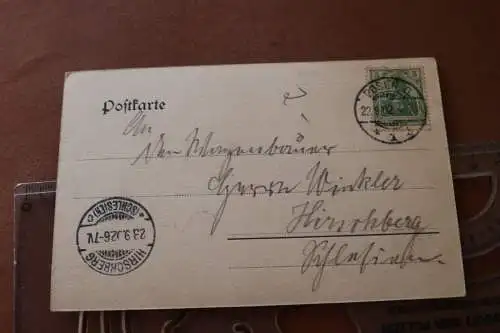 Postkarte
An
Den Wagenbauer
Herrn Winkler
Hirschberg
Schlesien.
POSEN
22.9.02
HIRSCHBERG
23.9.02.6-7V.
(SCHLESIEN)